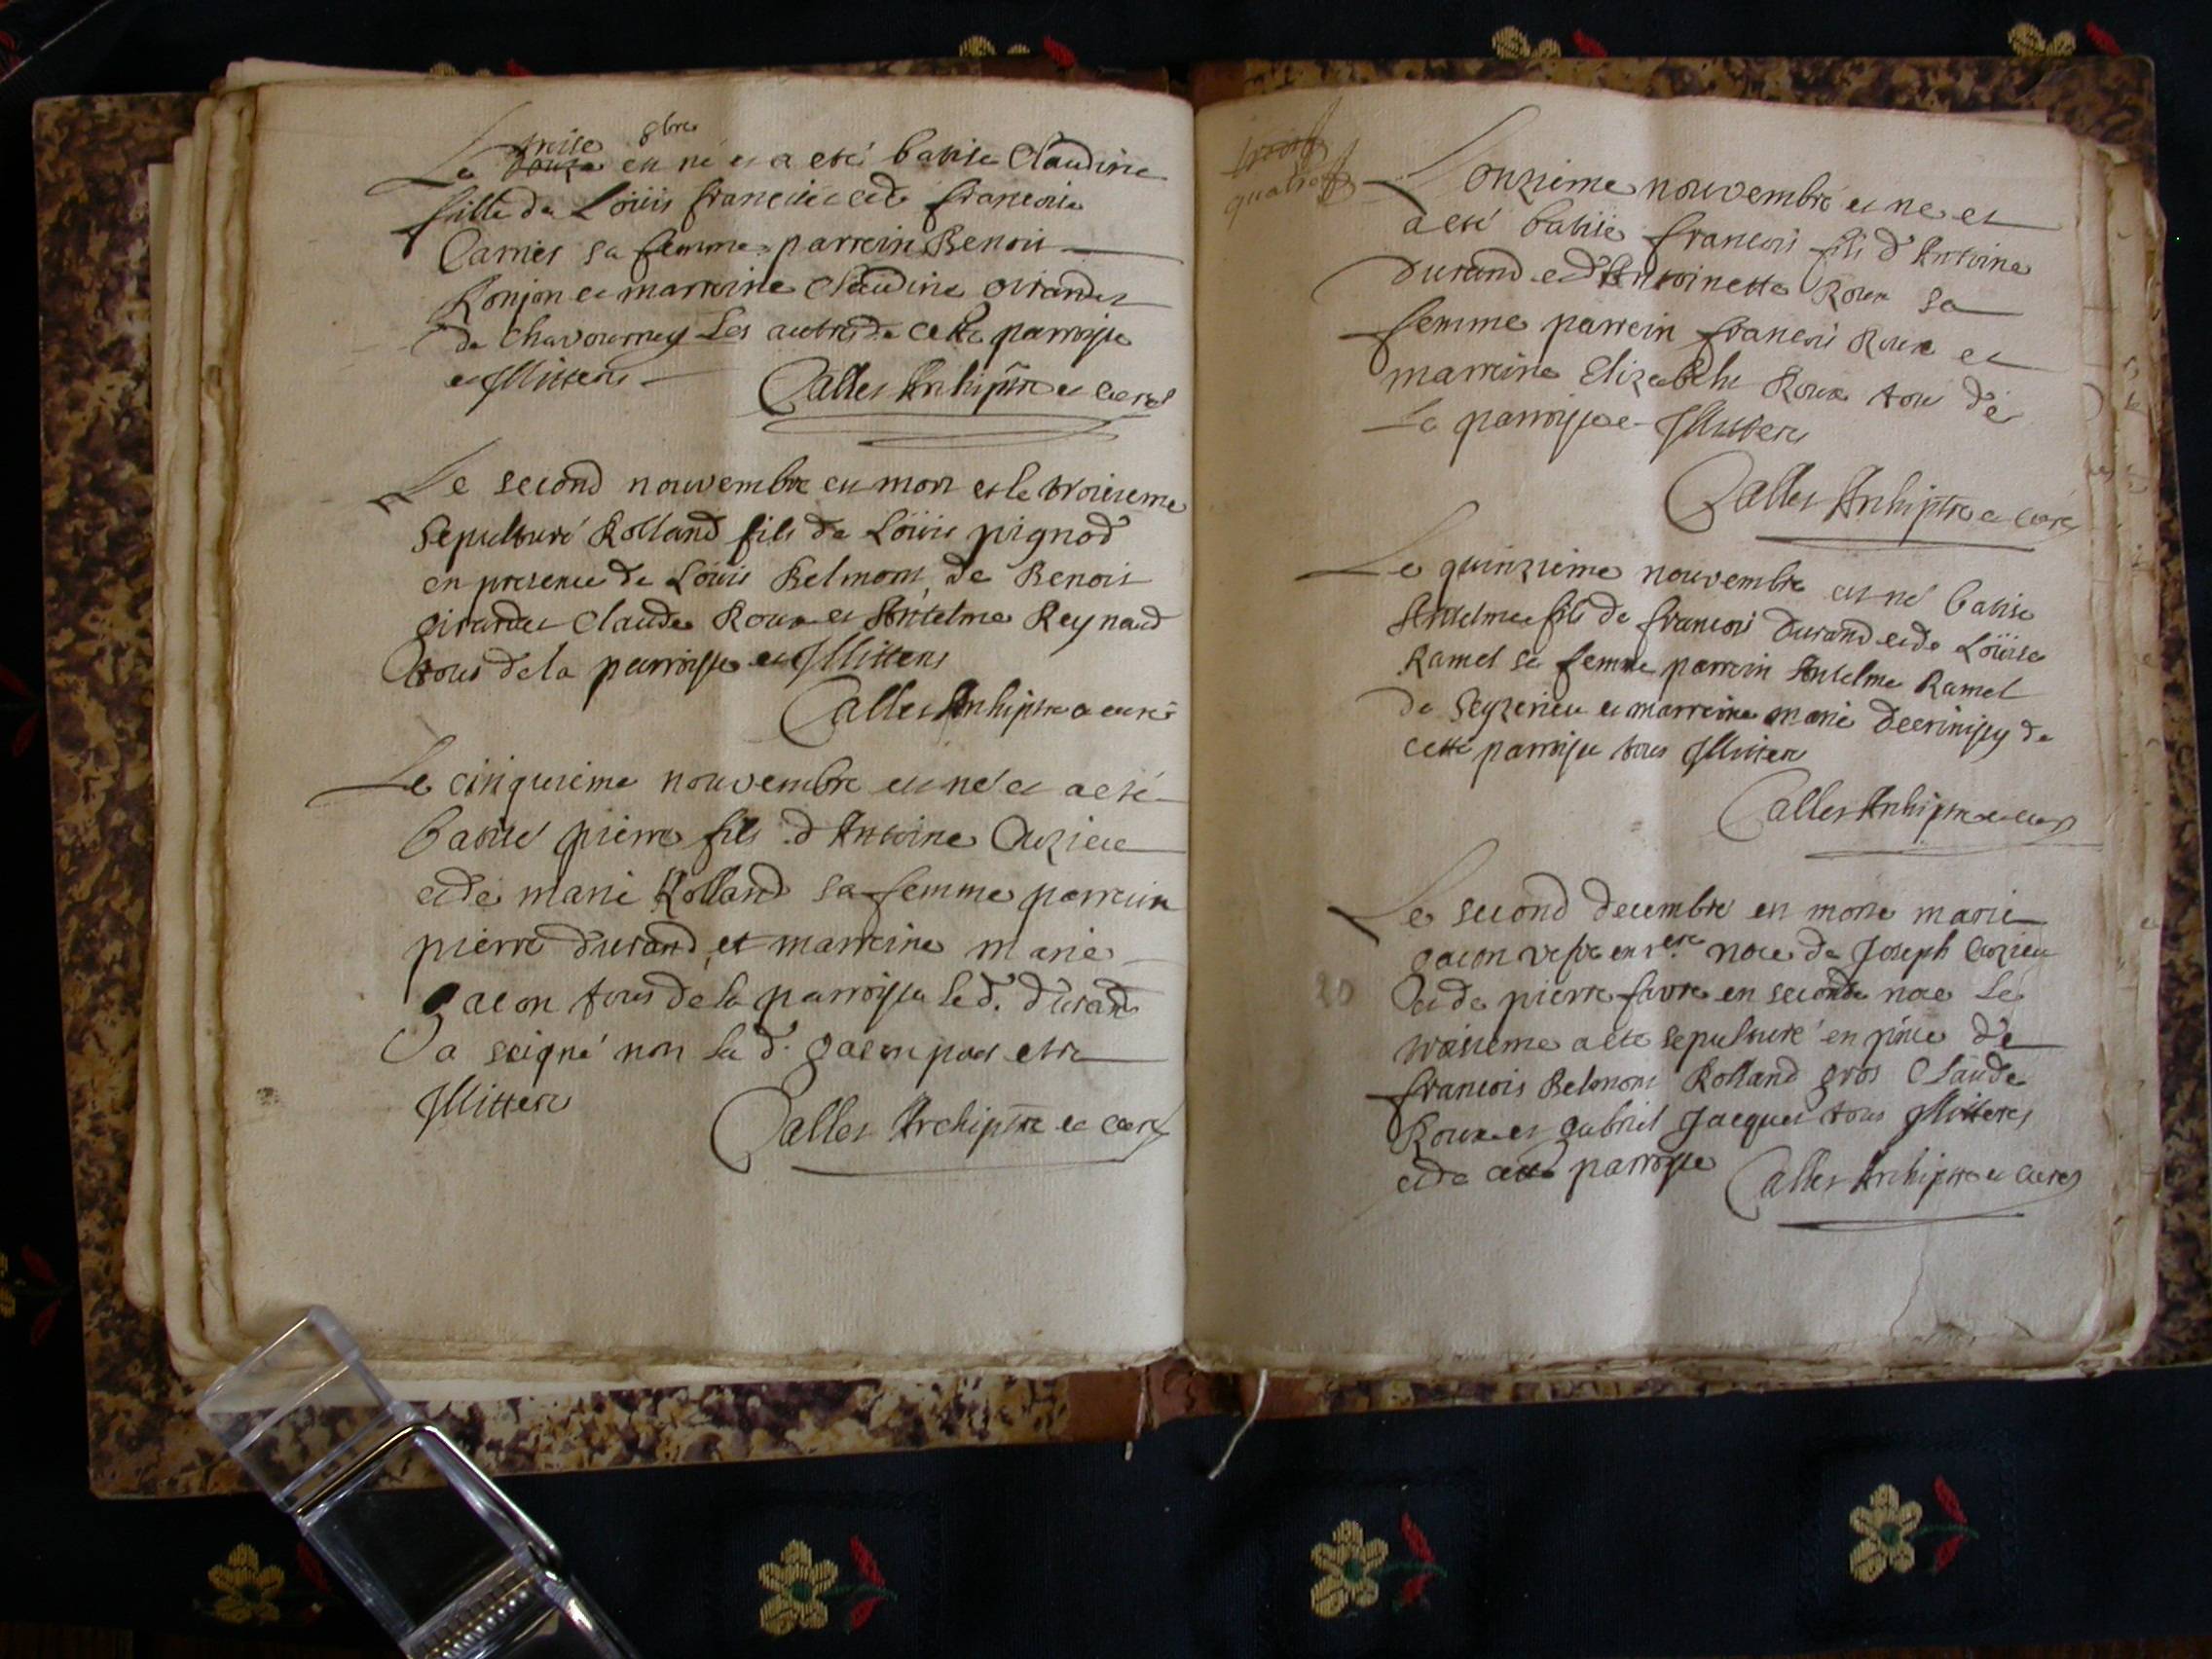 treise 8bre
Le douze est né et a esté batise Claudine
fille de Loüis et de francoise
Carrier sa femme parrein Benoit
Ronjon et marreine Claudine girandet
de Chavournay Les autres de cette parroisse
et Illitterés
Calles Archiptre et curé
Le second nouvembre est mort et le troisieme
sepulturé Rolland fils de Loüis pignod
en presence de Loüis Belmont, de Benoit
girandet Claude Roux et Antelme Reynaud
tous de la parroisse et Illitterés
Calles Archiptre et curé
Le cinquieme nouvembre est né et a esté
batisé pierre fils d'Antoine Cuzieu
et de marie Rolland sa femme parrein
pierre durand, et marreine marie
gacon tous de la parroisse led. durand
a seigné non lad. gacon pour etre
Illitteré
Calles Archiptre et curé
quatre
Lonzieme nouvembre est ne et
a esté batisé francois fils d'Antoine
durand et d'Antoinette Roux sa
femme parrein francois Roux et
marreine Elizabeht Roux tous de
La parroisse Illiterés
Calles Archiptre et curé
Le quinzieme nouvembre est né batisé
Antelme fils de francois durand et de Loüise
Ramel sa femme parrein Antelme Ramel
de Seyzerieu et marreine marie de
cette parroisse tous Illiterés
Calles Archiptre et curé
Le second decembre est morte marie
gacon vefve en 1ere noce de Joseph Cuzieu
20
et de pierre favre en seconde noce le
troisieme a esté sepulturé en pñce de
francois Belmont Rolland gros Claude
Roux et gabriel Jacquet tous Illitterés
et de cette parroisse
Calles Archiptre et curé